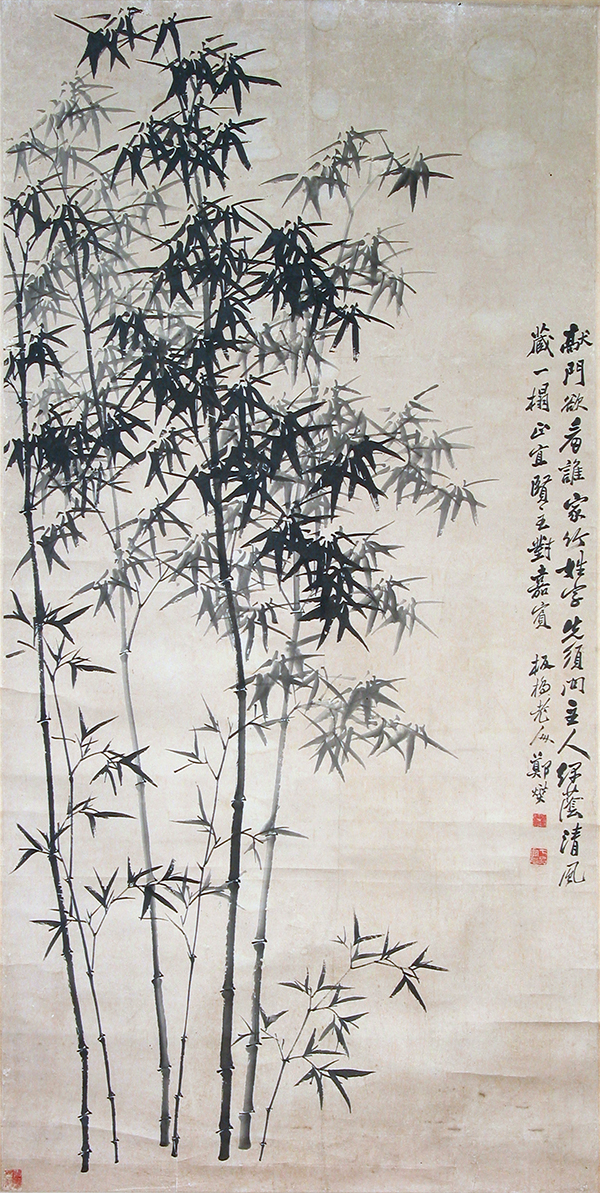 敲門欲看誰家竹姓字先須問主人綠蔭清風
藏一榻正宜賢主對嘉賓 板橋老人鄭燮